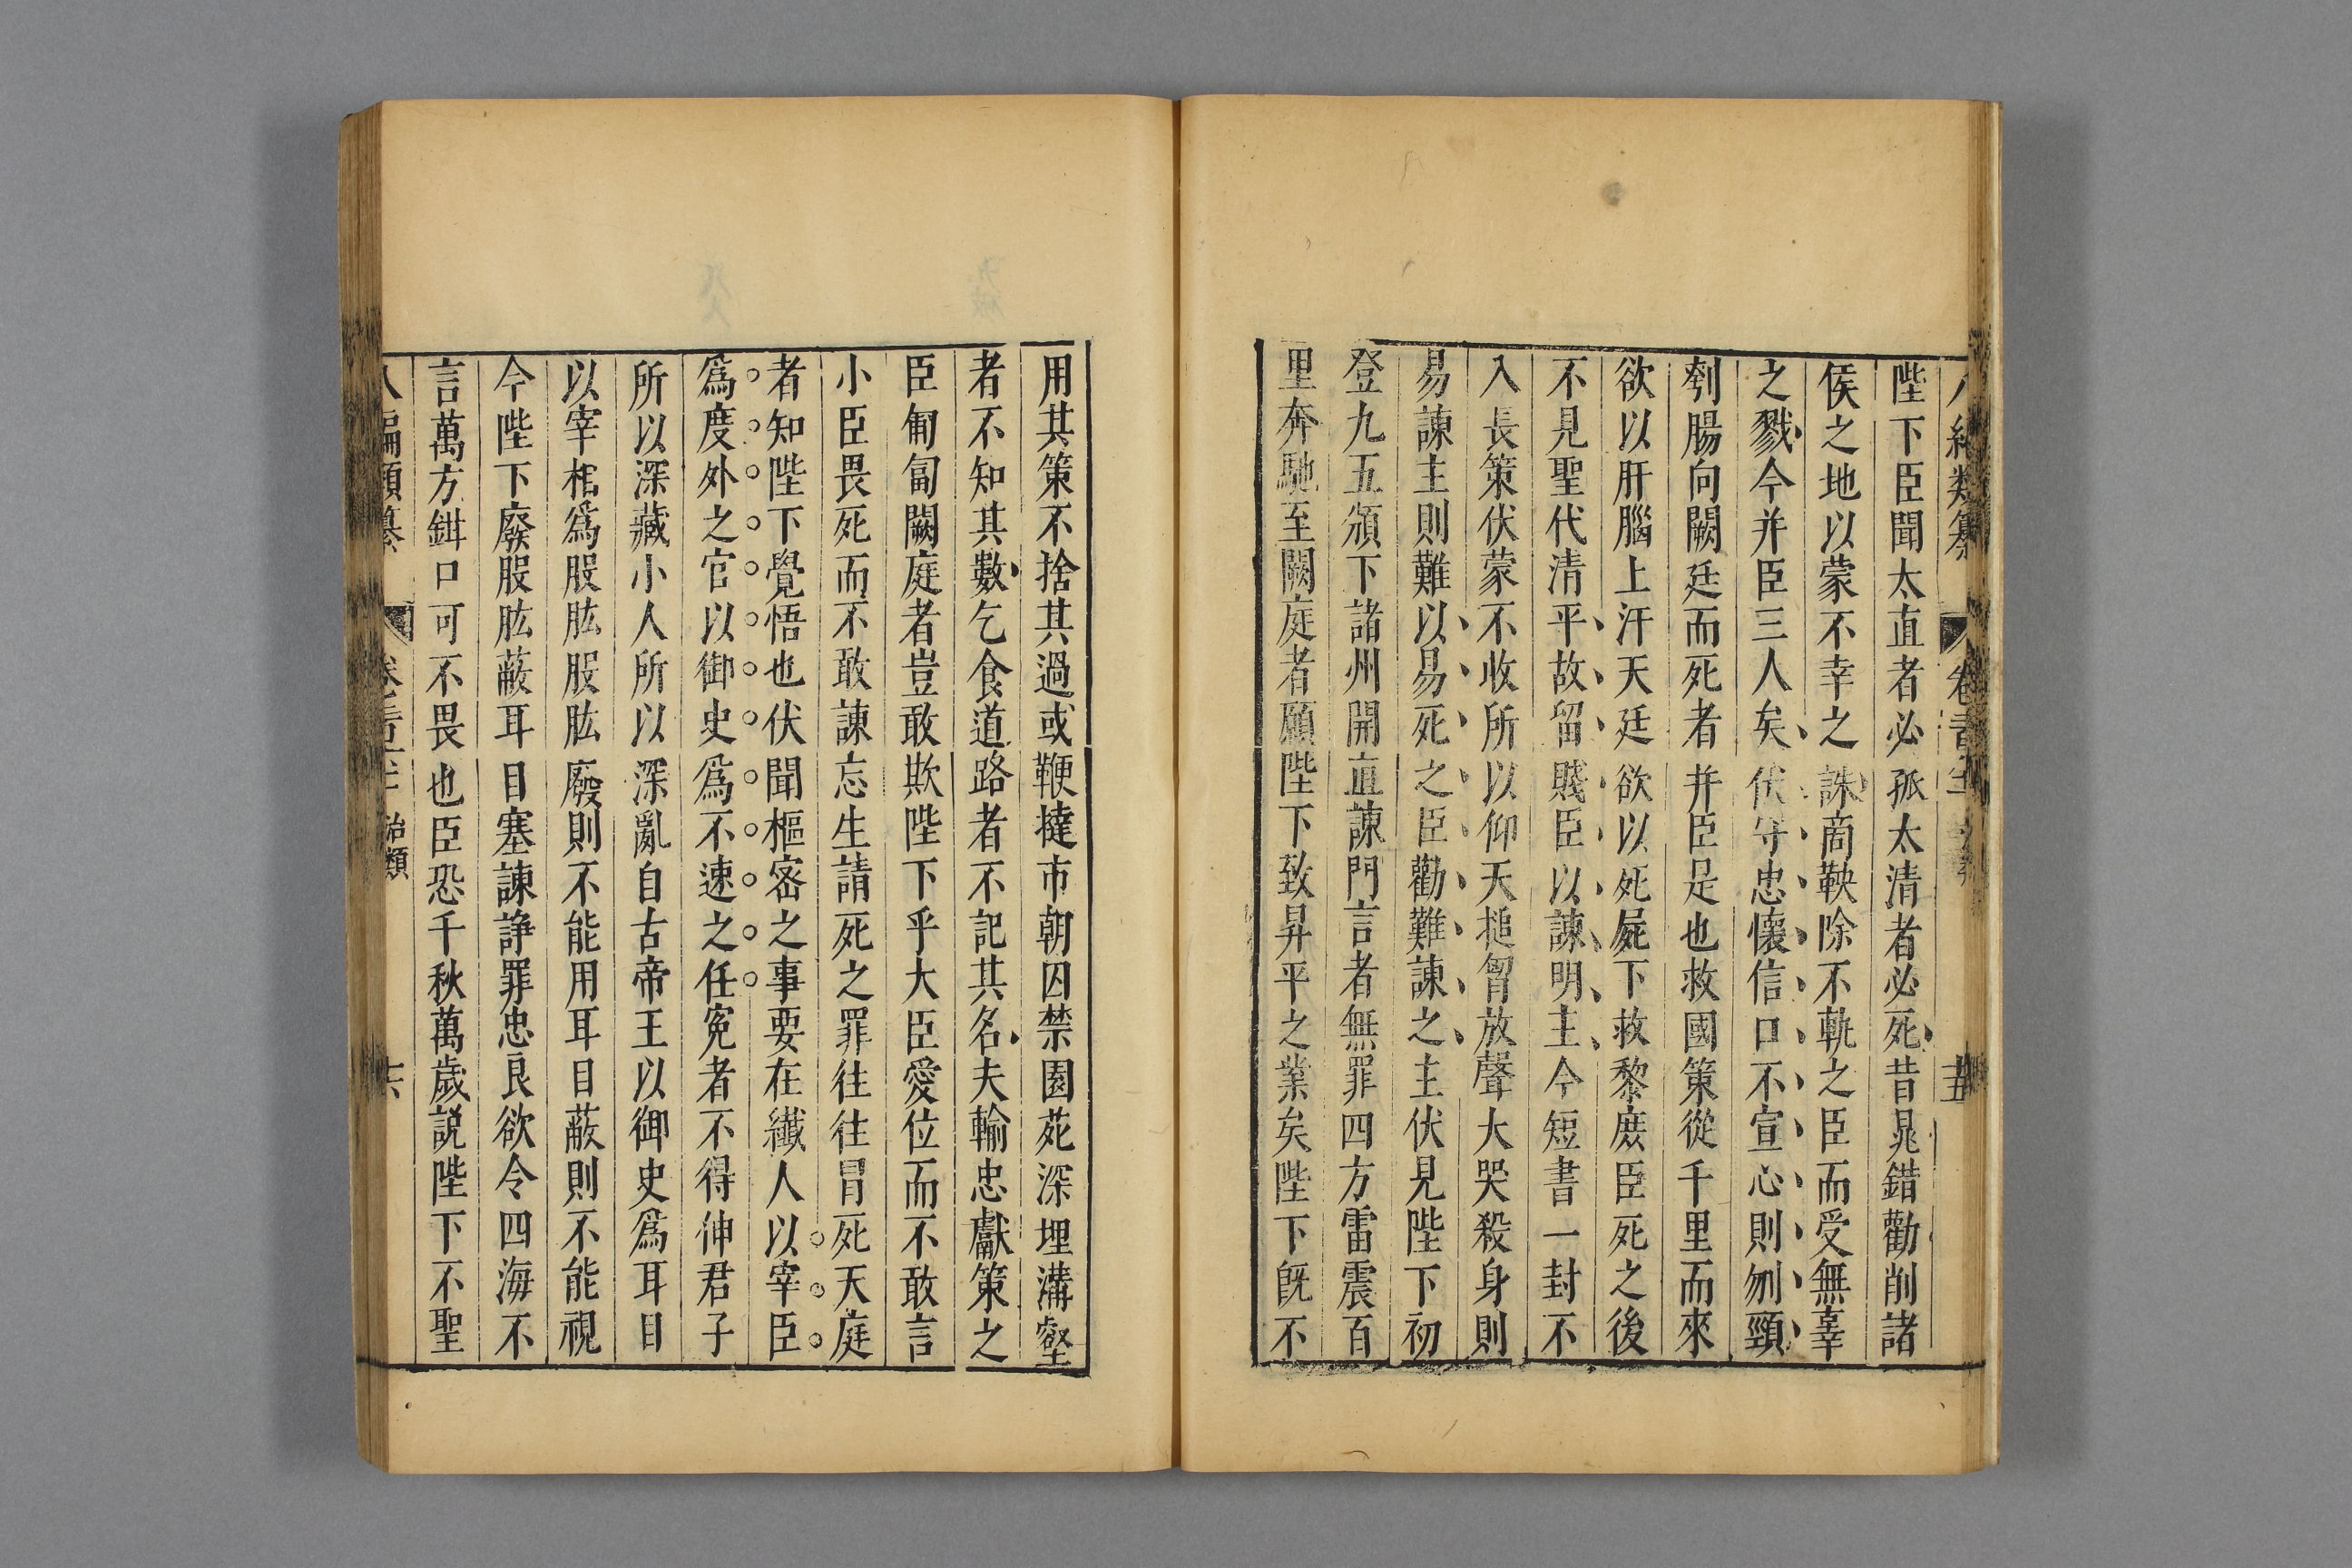 陛下臣聞太直者必孤太清者必死昔晁錯勸削諸
侯之地以蒙不幸之誅商鞅除不軌之臣而受無辜
之戮今并臣三人矣伏守忠懷信口不宣心則刎頸
刳腸向闕廷而死者并臣是也救國策從千里而來
欲以肝腦上汗天廷欲以死屍下救黎庶臣死之後
不見聖代清平故留賤臣以諫明主今短書一封不
入長策伏蒙不收所以仰天搥胷放聲大哭殺身則
易諫主則難以易死之臣勸難諫之主伏見陛下初
登九五頒下諸州開直諫門言者無罪四方雷震百
里奔馳至闕庭者願陛下致昇平之業矣陛下旣不
用其策不捨其過或鞭撻市朝囚禁園苑深埋溝壑
者不知其數乞食道路者不記其名夫輸忠獻策之
臣匍匐闕庭者豈敢欺陛下乎大臣愛位而不敢言
小臣畏死而不敢諫忘生請死之罪往往冒死天庭
者知陛下覺悟也伏聞樞密之事要在纖人以宰臣
爲度外之官以御史爲不速之任寃者不得伸君子
所以深藏小人所以深亂自古帝王以御史爲耳目
以宰相爲股肱股肱廢則不能用耳目蔽則不能視
今陛下廢股肱蔽耳目塞諫諍罪忠良欲令四海不
言萬方鉗口可不畏也臣恐千秋萬歲説陛下不聖
八編類纂 治類